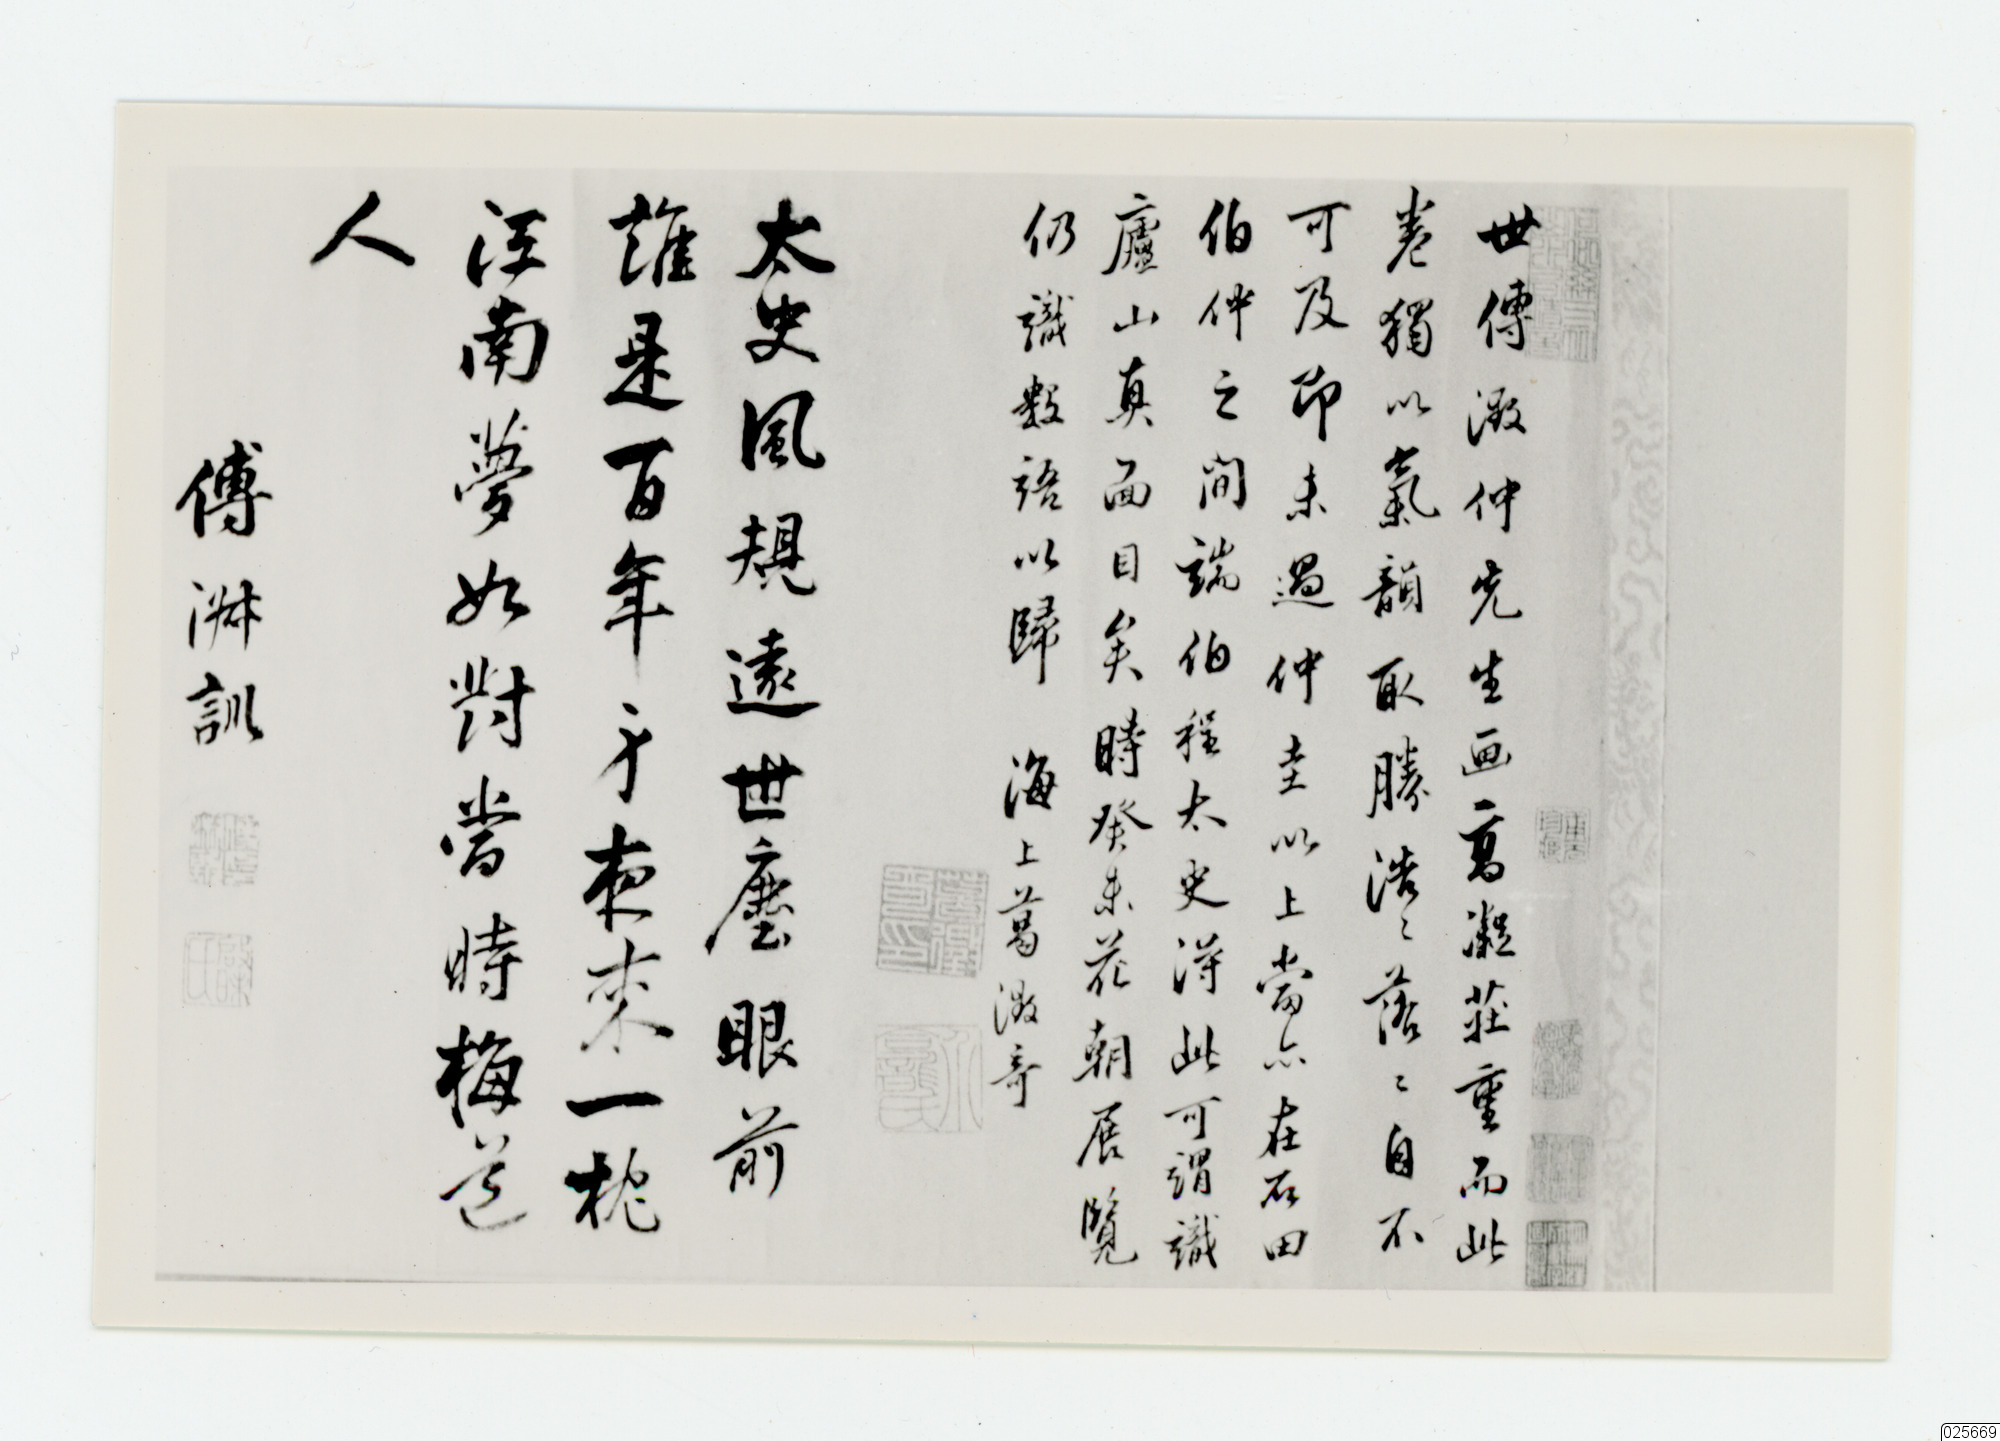 世傳澂仲先生画高凝莊重而此
卷獨以氣韻取勝浩〻落〻自不
可及即未過仲圭以上當亦在石田
伯仲之間端伯程太史得此可謂識
廬山真面目矣時癸未花朝展覽
仍識數語以歸 海上葛澂奇
太史風規遠世塵眼前
誰是百年身夜來一枕
江南夢如對當時梅道
人
傅淋訓
025669